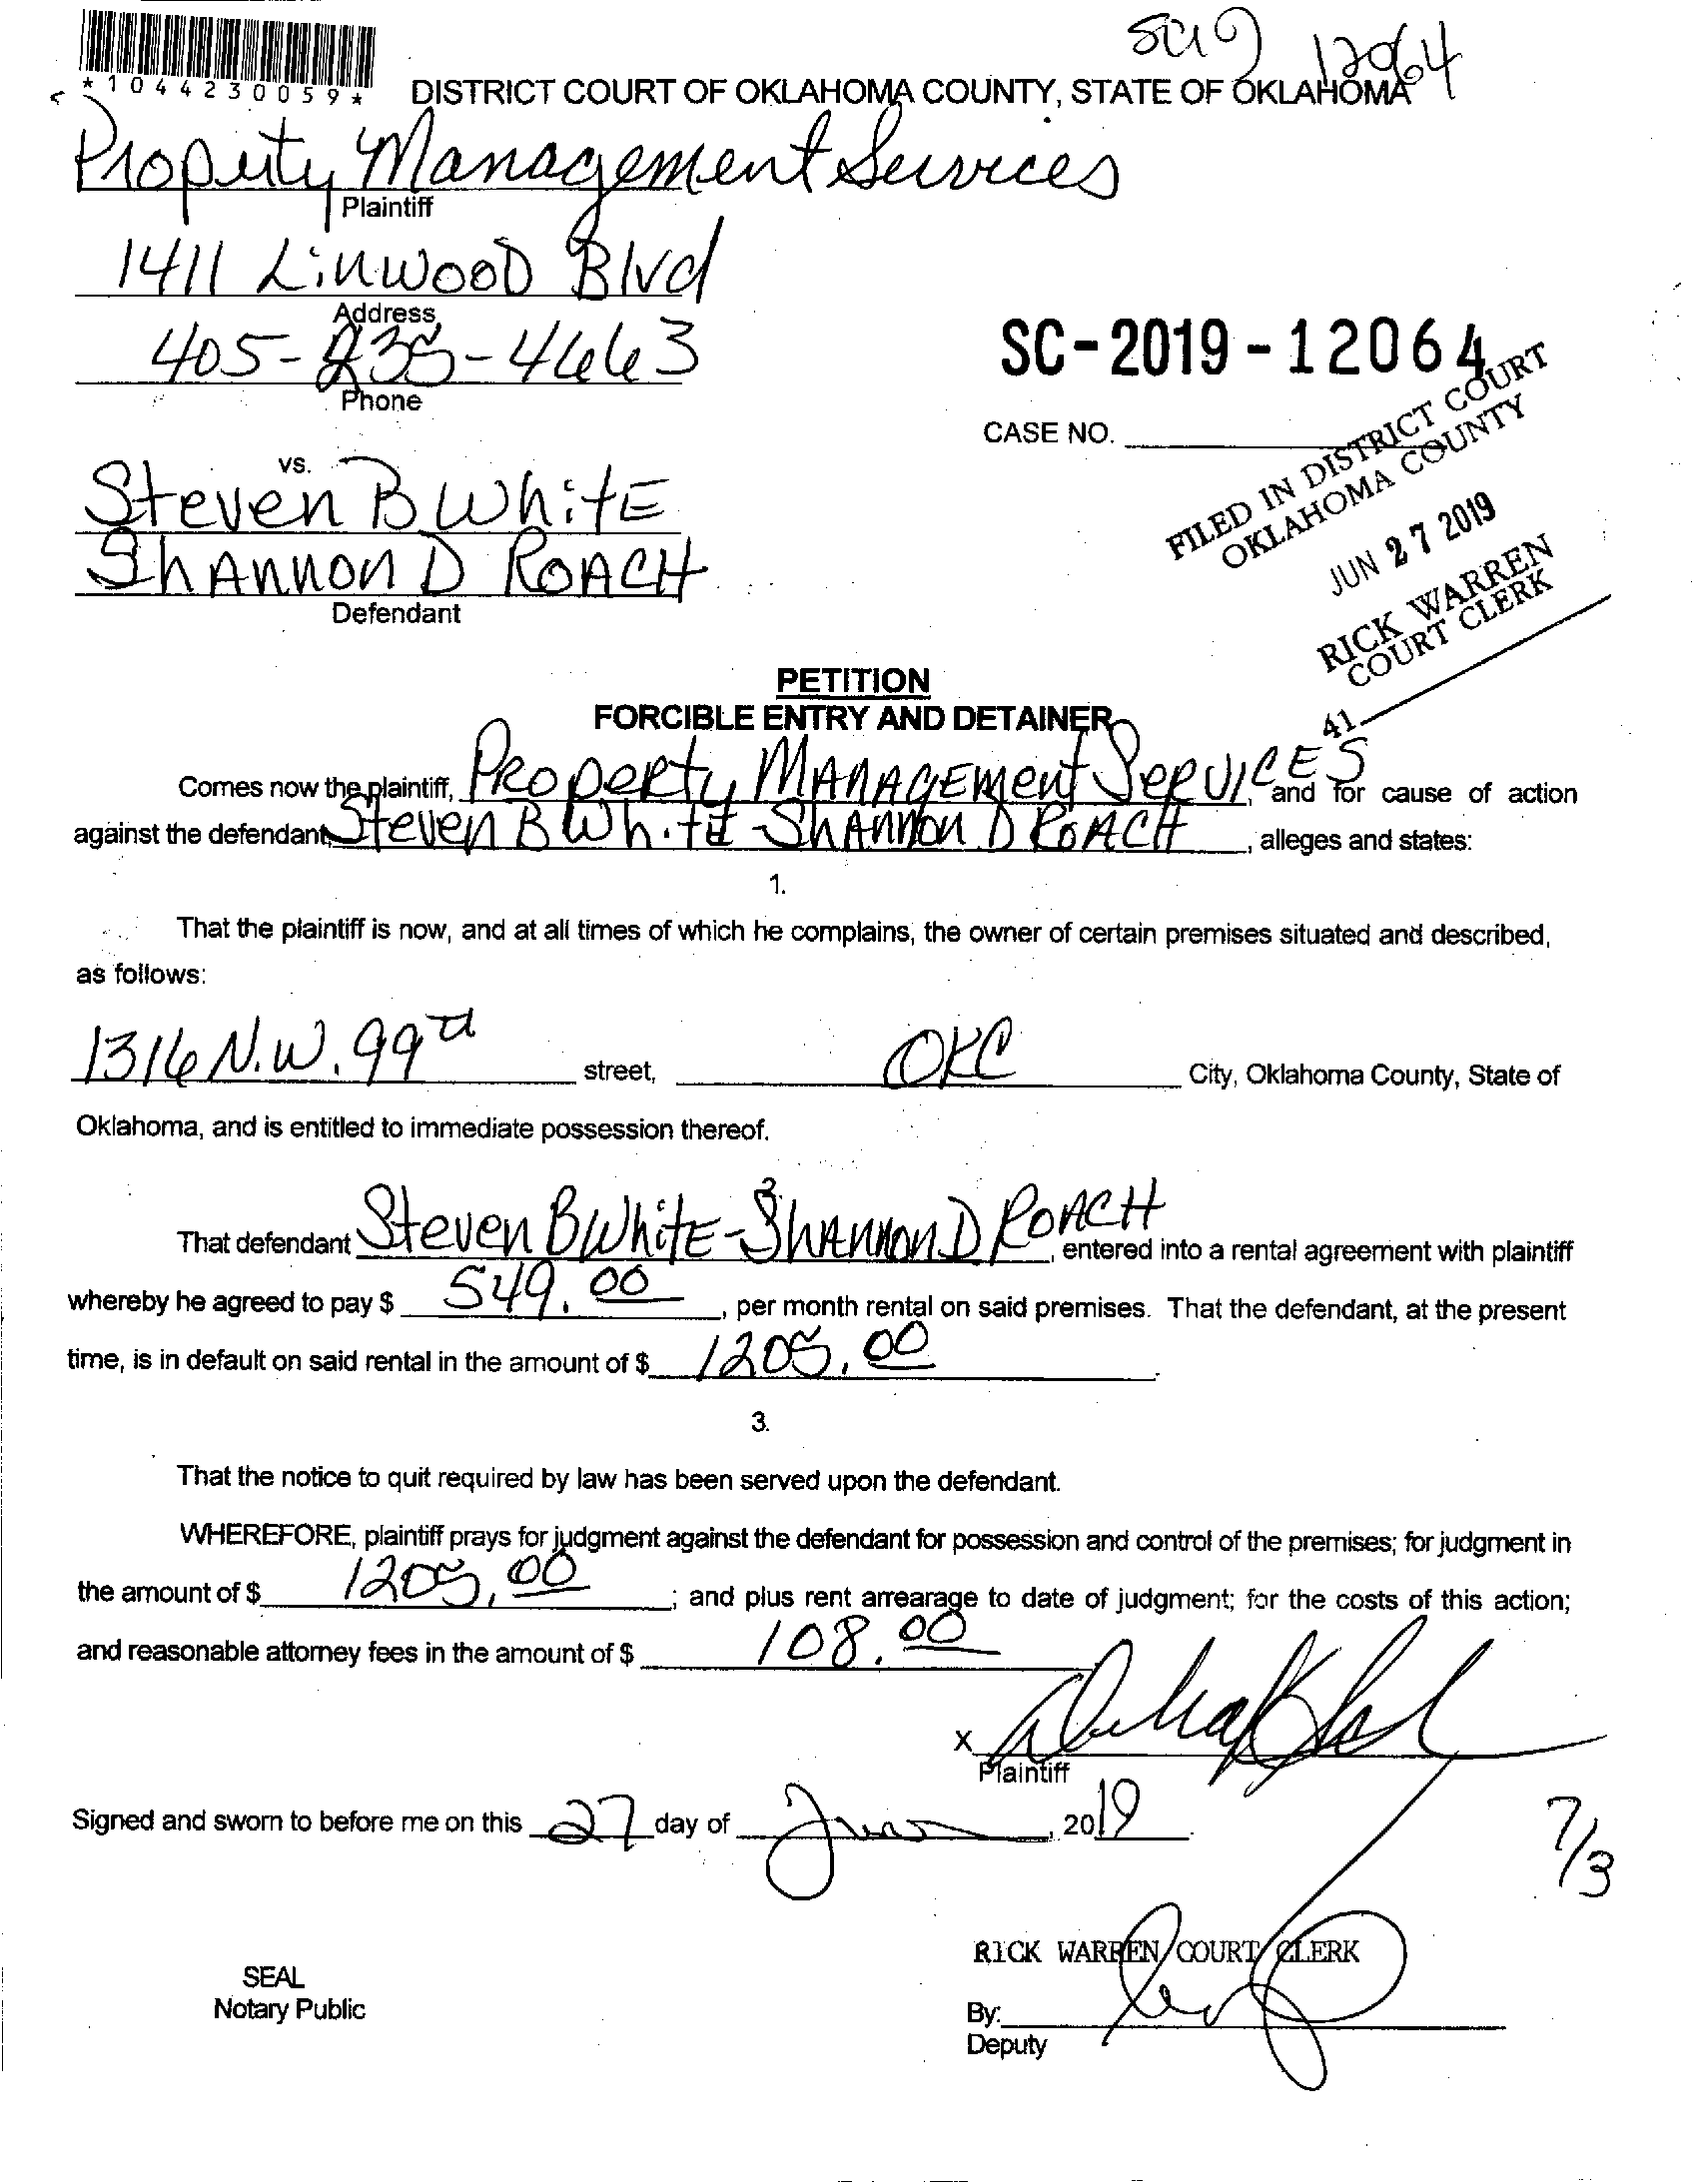 SC19 12064
*1044230059*
DISTRICT COURT OF OKLAHOMA COUNTY, STATE OF OKLAHOMA
Property Management Services
Plaintiff
1411 Linwood Blvd
Address
405-235-4663
Phone
SC-2019-12064
CASE NO.
FILED IN DISTRICT COURT
OKLAHOMA COUNTY
JUN 27 2019
RICK WARREN
COURT CLERK
41
vs.
Steven B White
Shannon D Roach
Defendant
PETITION
FORCIBLE ENTRY AND DETAINER
Comes now the plaintiff, Property Management Services, and for cause of action
against the defendant, Steven B White - Shannon D Roach, alleges and states:
1.
That the plaintiff is now, and at all times of which he complains, the owner of certain premises situated and described,
as follows:
1316 N.W. 99th street, OKC City, Oklahoma County, State of
Oklahoma, and is entitled to immediate possession thereof.
2
That defendant Steven B White - Shannon D Roach, entered into a rental agreement with plaintiff
whereby he agreed to pay $ 549.00, per month rental on said premises. That the defendant, at the present
time, is in default on said rental in the amount of $ 1205.00.
3.
That the notice to quit required by law has been served upon the defendant.
WHEREFORE, plaintiff prays for judgment against the defendant for possession and control of the premises; for judgment in
the amount of $ 1205.00; and plus rent arrearage to date of judgment; for the costs of this action;
and reasonable attorney fees in the amount of $ 108.00
X
Plaintiff
Signed and sworn to before me on this 27 day of June, 2019.
7/3
RICK WARREN, COURT CLERK
SEAL
Notary Public
By:
Deputy